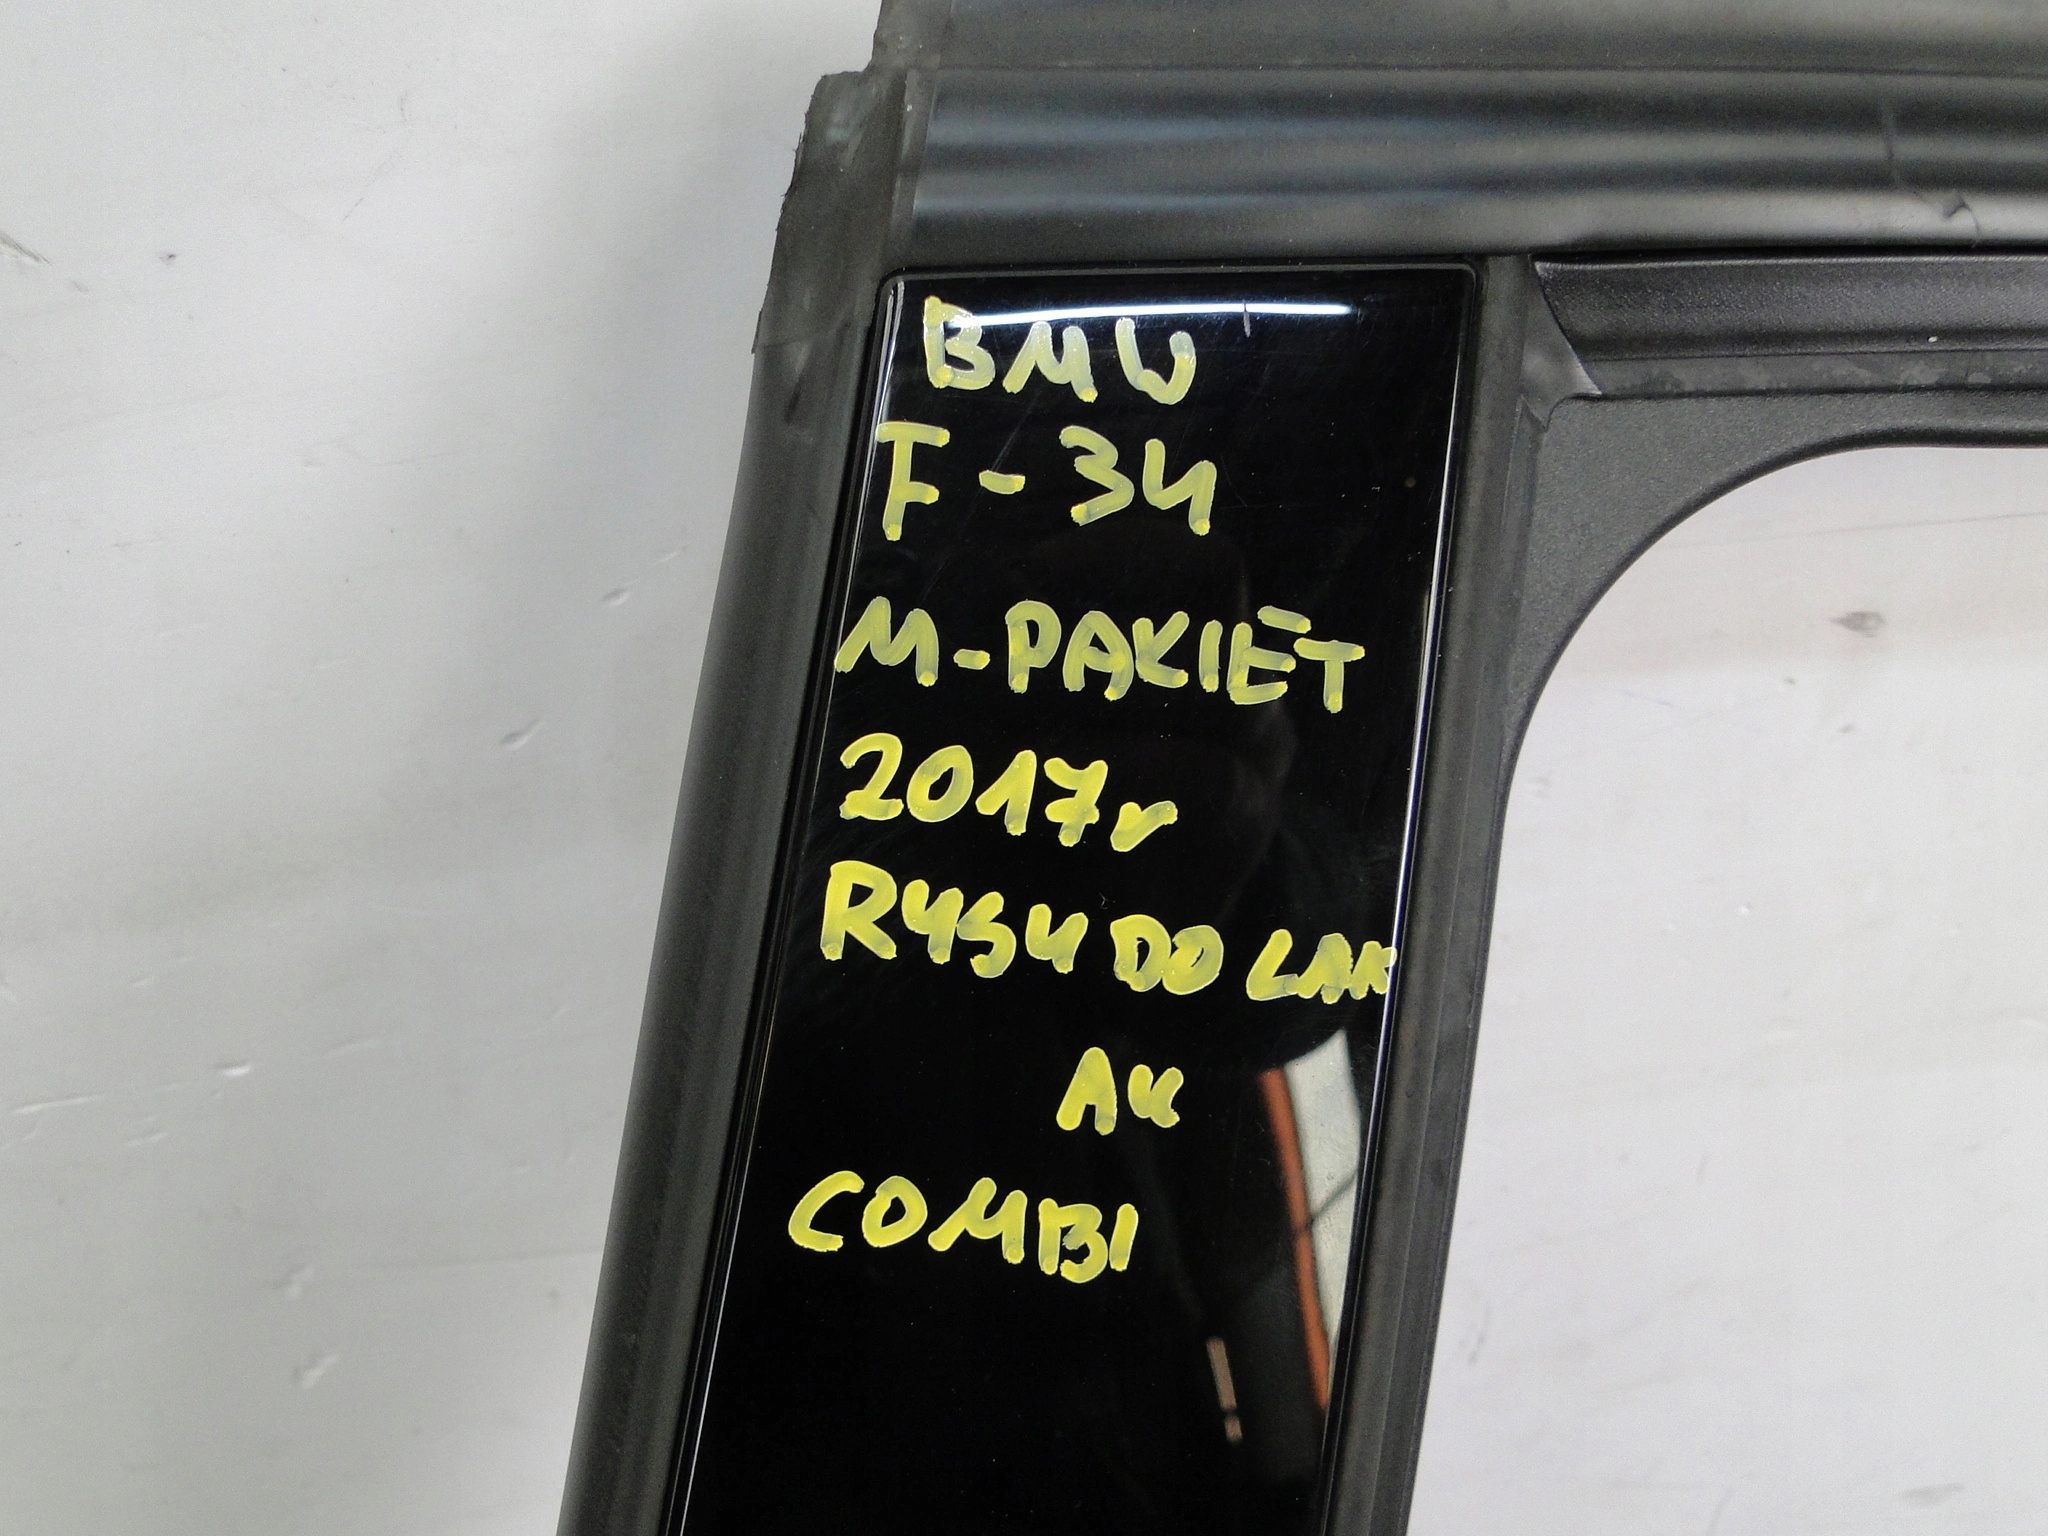 BMW
F-34
M-PAKIET
2017r
RYSY DO LAK
AK
COMBI